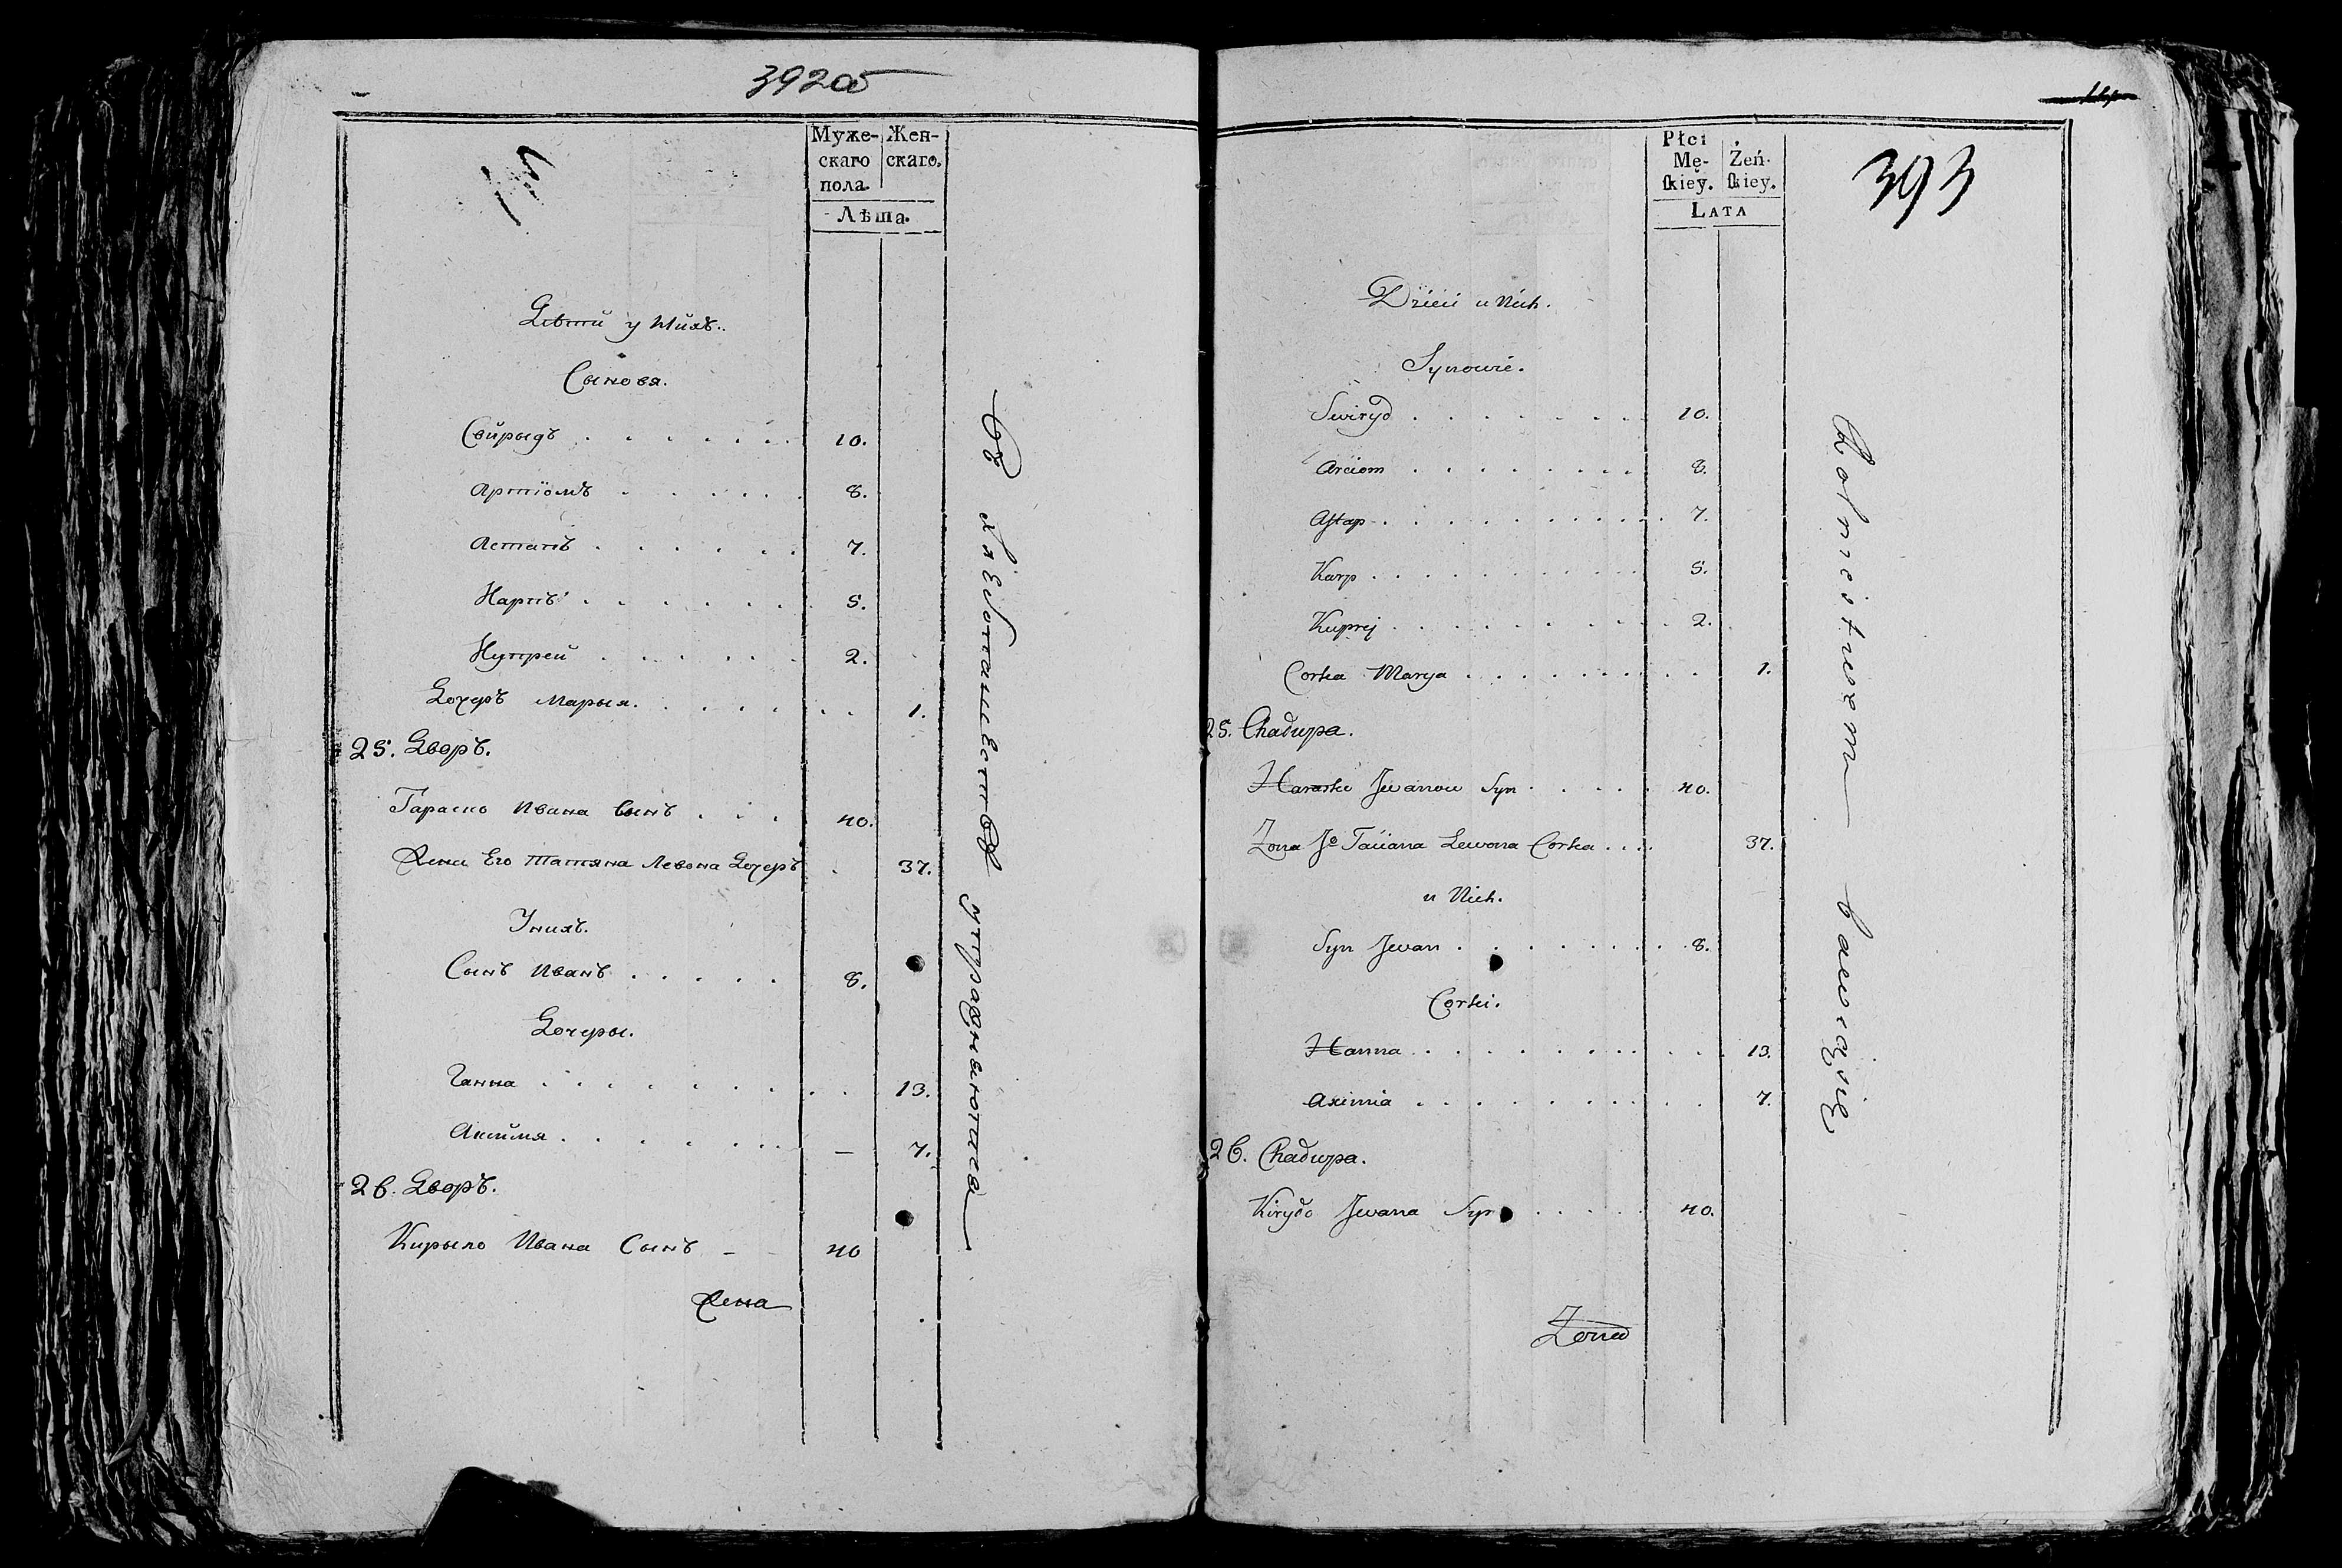 392об
Муже-
скаго
пола.
Жен-
скаго.
Лѣта.
Дѣти у Нихъ.
Сыновя.
Свирыдъ . . . . . . . 10.
Артіомъ . . . . . . 8.
Астапъ . . . . . . 7.
Карпъ . . . . . . 5.
Купрей . . . . . . 2.
Дочеръ Марыя. . . . . . . . 1.
25. Дворъ.
Гараско Ивана Сынъ . . . 40.
Жена Его Татяна Левона Дочеръ . 37.
У нихъ.
Сынъ Иванъ . . . . . 8.
Дочеры.
Ганна . . . . . . . . . . 13.
Аксимя . . . . . . . — 7.
26. Дворъ.
Кирыло Ивана Сынъ - 40
Жена
въ хлѣбопашествѣ упражняютися
393
Płci
Mę-
ſkieÿ.
Żeń-
ſkiey.
Lata
Dzieci u Nich.
Synowie.
Swiryd . . . . . . . 10.
Arciom . . . . . . . . 8.
Aſtap . . . . . . . . . . 7.
Karp . . . . . . . . . . 5.
Kuprej . . . . . . . . . . 2.
Corka Marya . . . . . . . . . . 1.
25. Chadupa.
Harasko Jwanow Syn . . . . . 40.
Zona Jº Taciana Lewona Corka . . . . 37.
u Nich.
Syn Jwan . . . . . . . . . 8.
Corki.
Hanna . . . . . . . . . . . 13.
Aximia . . . . . . . . . . 7.
26. Chadupa.
Kirydo Jwana Syn . . . . . 40.
Zona
Rolnictwem bawią się